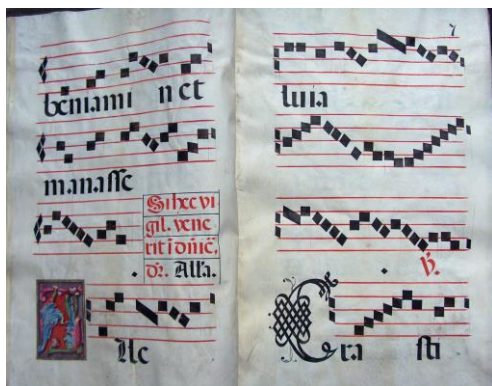 beniami n et
manasse
Si hec vi
gil. vene
rit i dnic̄.
dr̄. All'a.
Alle
7
luia
℣.
Cra sti